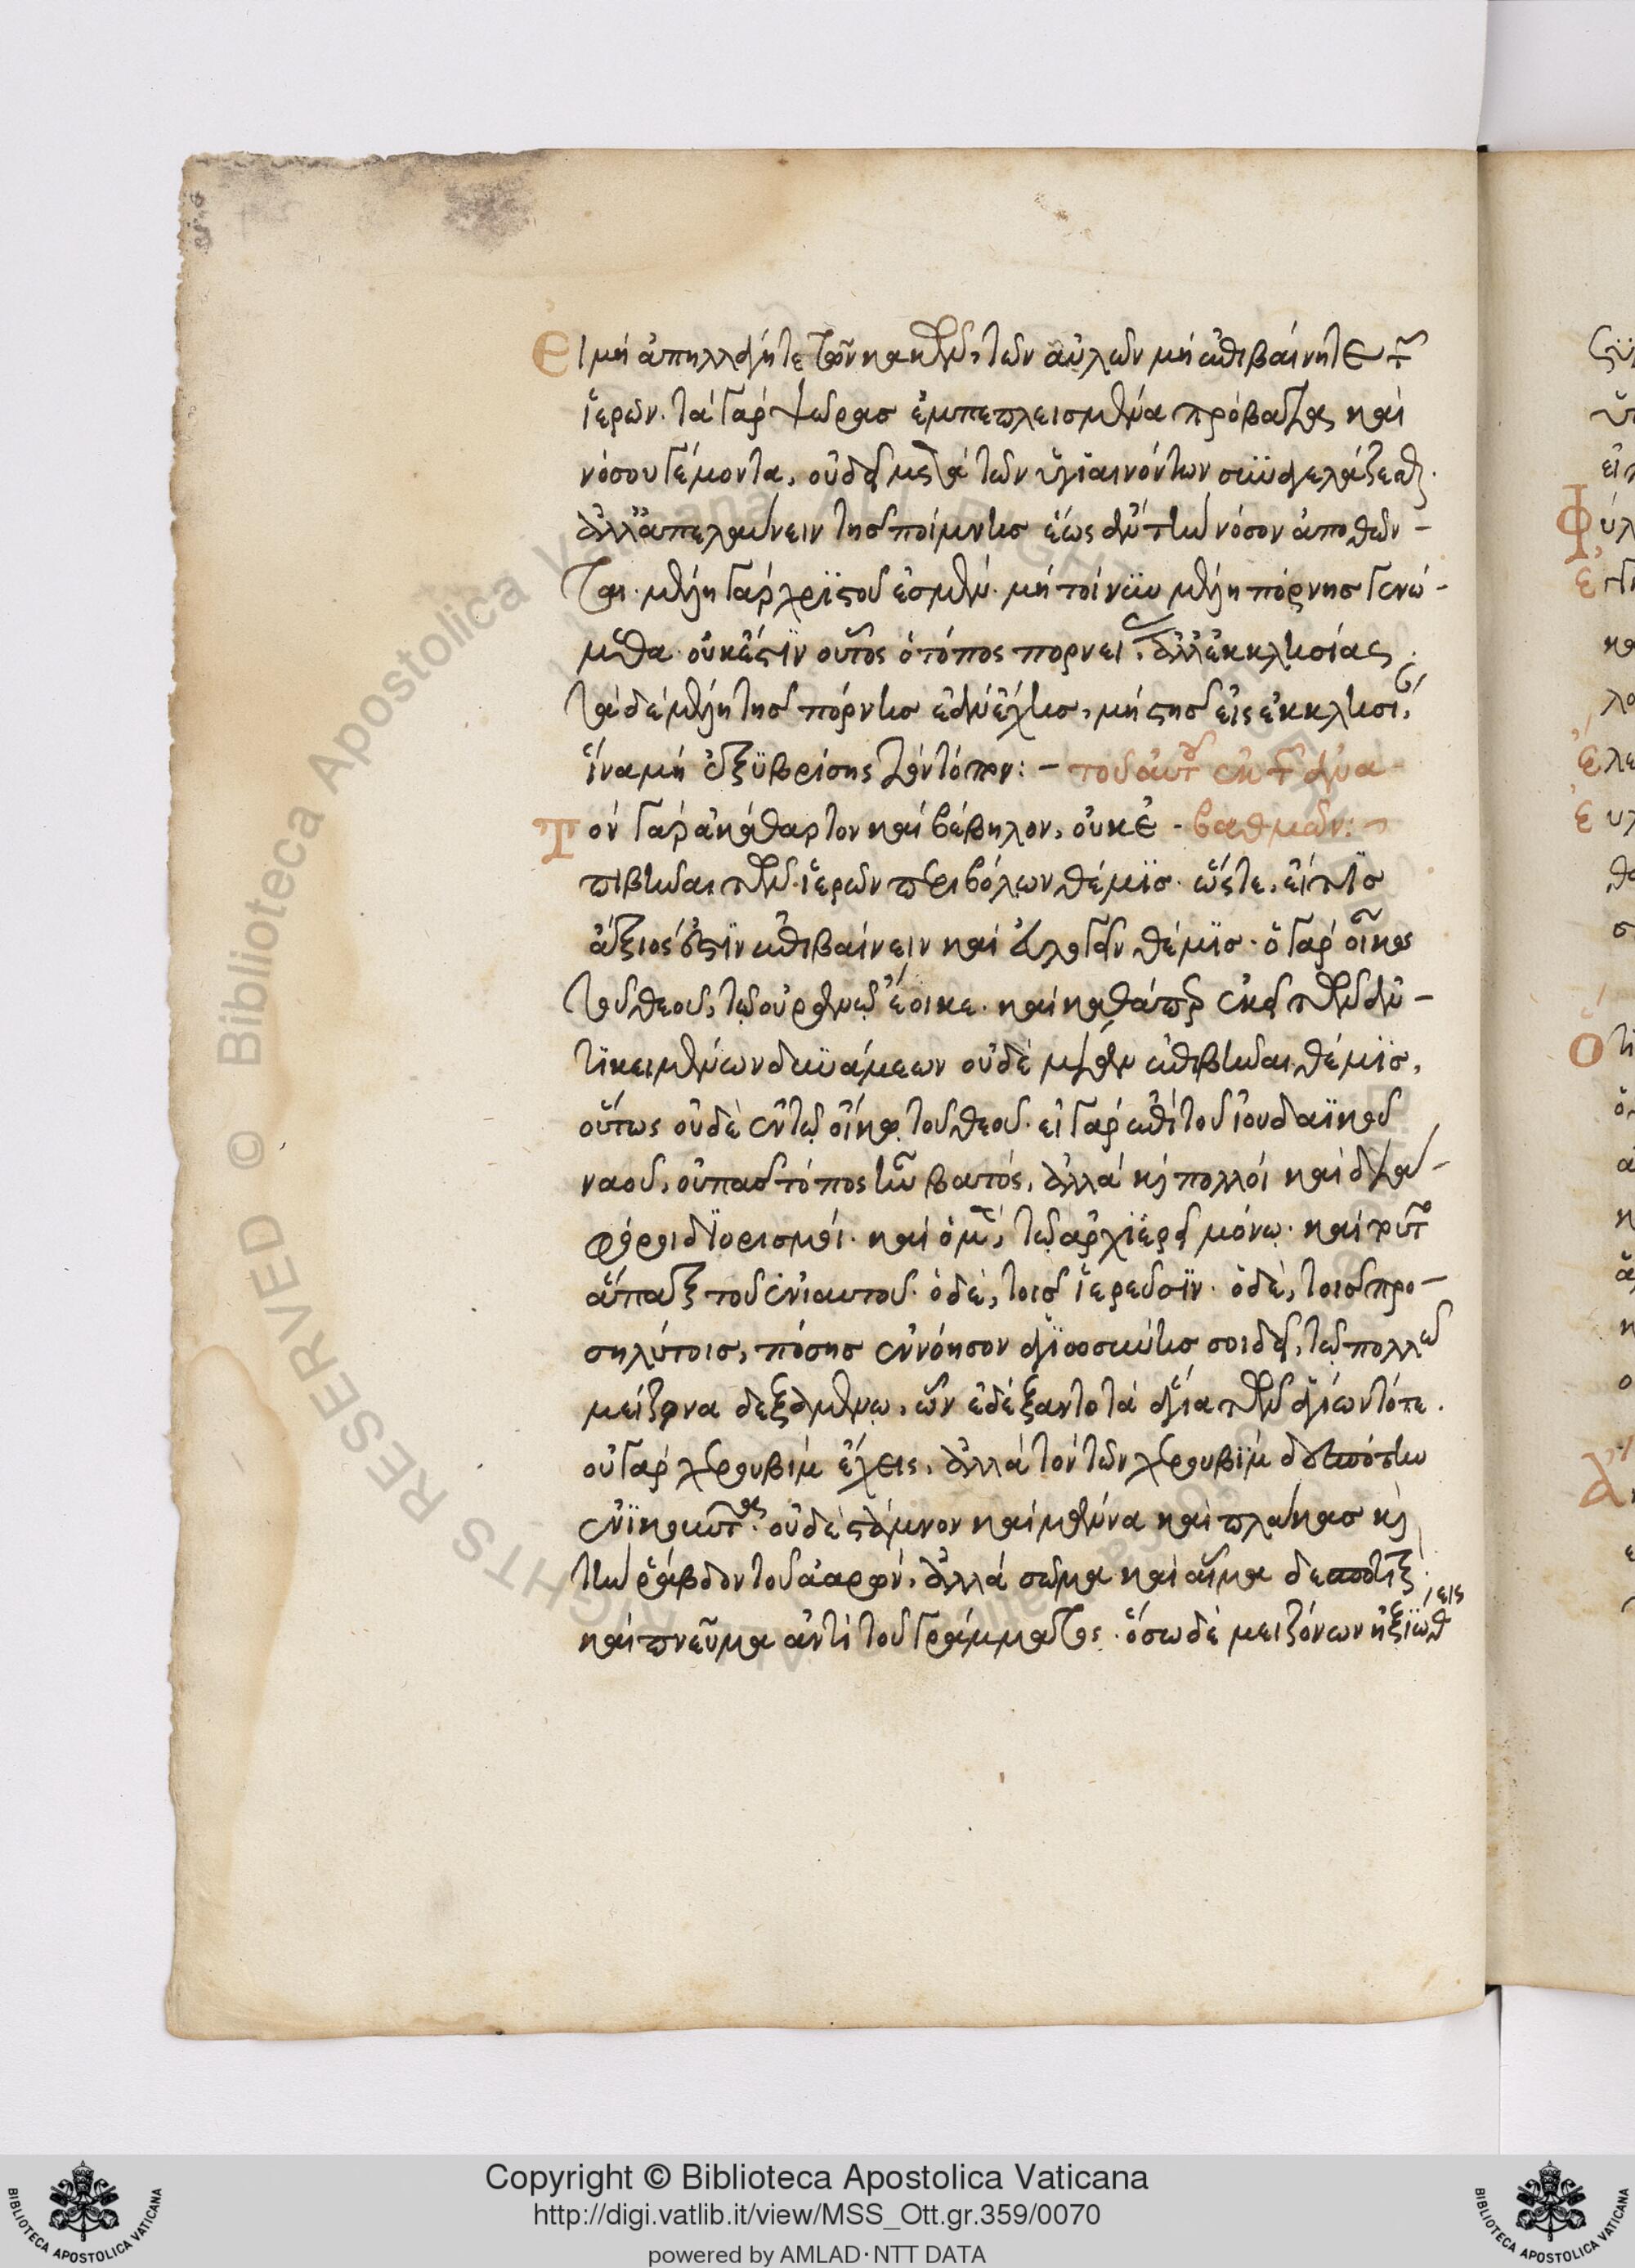 Εἰ μὴ ἀπηλλάγητε τῶν κακῶν, τῶν αὐλῶν μὴ ἐπιβαίνητε τῶν
ἱερῶν. τὰ γὰρ ψώρας ἐμπεπλεισμένα πρόβατα καὶ
νόσου γέμοντα, οὐ δεῖ μετὰ τῶν ὑγιαινόντων συναυλίζεσθαι.
ἀλλ' ἀπελαύνειν τῆς ποίμνης ἕως ἂν τὴν νόσον ἀποθῶν-
ται. μέλη γὰρ χριστοῦ ἐσμέν. μὴ τοίνυν μέλη πόρνης γενώ-
μεθα. οὐκ ἔστιν οὗτος ὁ τόπος πορνεῖον, ἀλλ' ἐκκλησίας.
τὰ δὲ μέλη τῆς πόρνης ἐὰν ἔχῃς, μὴ στῇς εἰς ἐκκλησίαν,
ἵνα μὴ ἐξυβρίσῃς τὸν τόπον:- τοῦ αὐτοῦ ἐκ τῶν ἀνα
Τὸν γὰρ ἀκάθαρτον καὶ βέβηλον, οὐκ ἐ- βαθμῶν:-
πιβῆναι τῶν ἱερῶν περιβόλων θέμις. ὥστε, εἴ τις
ἄξιός ἐστιν ἐπιβαίνειν καὶ θέμις. ὁ γὰρ οἶκος
τοῦ θεοῦ, τῷ οὐρανῷ ἔοικε. καὶ καθάπερ ἐκεῖ τῶν ἀν-
τικειμένων δυνάμεων οὐδὲ μίαν ἐπιβῆναι θέμις,
οὕτως οὐδὲ ἐν τῷ οἴκῳ τοῦ θεοῦ. εἰ γὰρ ἐπὶ τοῦ ἰουδαϊκοῦ
ναοῦ, οὐ πᾶσι τόπος ἦν βατός, ἀλλὰ καὶ πολλοὶ καὶ διά-
φοροι διορισμοί. καὶ ὁ μέν, τῷ ἀρχιερεῖ μόνῳ. καὶ τοῦτο
ἅπαξ τοῦ ἐνιαυτοῦ. ὁ δὲ, τοῖς ἱερεῦσιν. ὁ δὲ, τοῖς προ-
σηλύτοις, πόσης ἐννόησον ἁγιοσύνης σοι δεῖ, τῷ πολλῷ
μείζονα δεξαμένῳ, ὧν ἐδέξαντο τὰ ἅγια τῶν ἁγίων τότε.
οὐ γὰρ χερουβὶμ ἔχεις, ἀλλὰ τὸν τῶν χερουβὶμ δεσπότην
ἐνοικοῦντα. οὐδὲ στάμνον καὶ μάννα καὶ πλάκας καὶ
τὴν ῥάβδον τοῦ ἀαρών, ἀλλὰ σῶμα καὶ αἷμα δεσποτικὸν
καὶ πνεῦμα ἀντὶ τοῦ γράμματος. ὅσῳ δὲ μειζόνων ἠξιώθεις
Copyright © Biblioteca Apostolica Vaticana
http://digi.vatlib.it/view/MSS_Ott.gr.359/0070
powered by AMLAD·NTT DATA